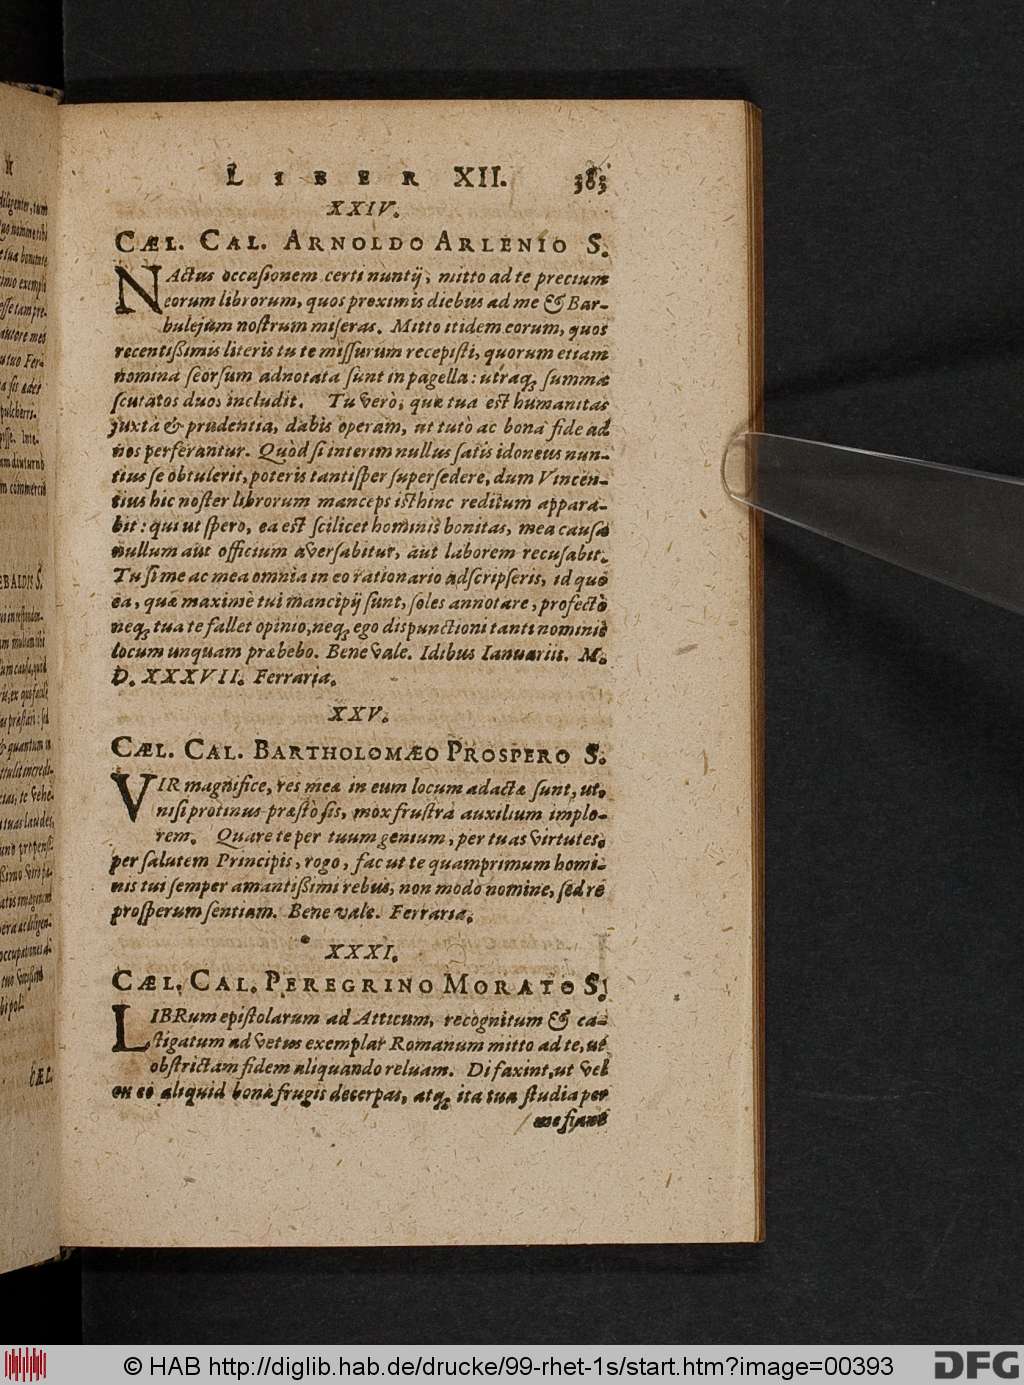 LIBER XII. 383
XXIV.
CÆL. CAL. ARNOLDO ARLENIO S.
NActus occasionem certi nuntij, mitto ad te precium
eorum librorum, quos proximis diebus ad me & Bar-
bulejum nostrum miseras. Mitto itidem eorum, quos
recentißimis literis tu te missurum recepisti, quorum etiam
nomina seorsum adnotata sunt in pagella: utraq; summa
scutatos duos includit. Tu verò, quæ tua est humanitas
juxtà & prudentia, dabis operam, ut tutò ac bona fide ad
nos perferantur. Quòd si interim nullus satis idoneus nun-
tius se obtulerit, poteris tantisper supersedere, dum Vincen-
tius hic noster librorum manceps isthinc reditum appara-
bit: qui ut spero, ea est scilicet hominis bonitas, mea causa
nullum aut officium aversabitur, aut laborem recusabit.
Tu si me ac mea omnia in eo rationario adscripseris, id quo
ea, quæ maximè tui mancipij sunt, soles annotare, profectò
neq; tua te fallet opinio, neq; ego dispunctioni tanti nominis
locum unquam præbebo. Bene vale. Idibus Ianuariis. M.
D. XXXVII. Ferraria.
XXV.
CÆL. CAL. BARTHOLOMÆO PROSPERO S.
VIR magnifice, res meæ in eum locum adactæ sunt, ut,
nisi protinus præstò sis, mox frustrà auxilium implo-
rem. Quare te per tuum genium, per tuas virtutes,
per salutem Principis, rogo, fac ut te quamprimum homi-
nis tui semper amantißimi rebus, non modò nomine, sed re
prosperum sentiam. Bene vale. Ferraria.
XXXI.
CÆL. CAL. PEREGRINO MORATO S.
LIBRum epistolarum ad Atticum, recognitum & ca-
stigatum ad vetus exemplar Romanum mitto ad te, ut
obstrictam fidem aliquando reluam. Di faxint, ut vel
ex eo aliquid bonæ frugis decerpas, atq; ita tua studia per
me fiant
© HAB http://diglib.hab.de/drucke/99-rhet-1s/start.htm?image=00393
DFG